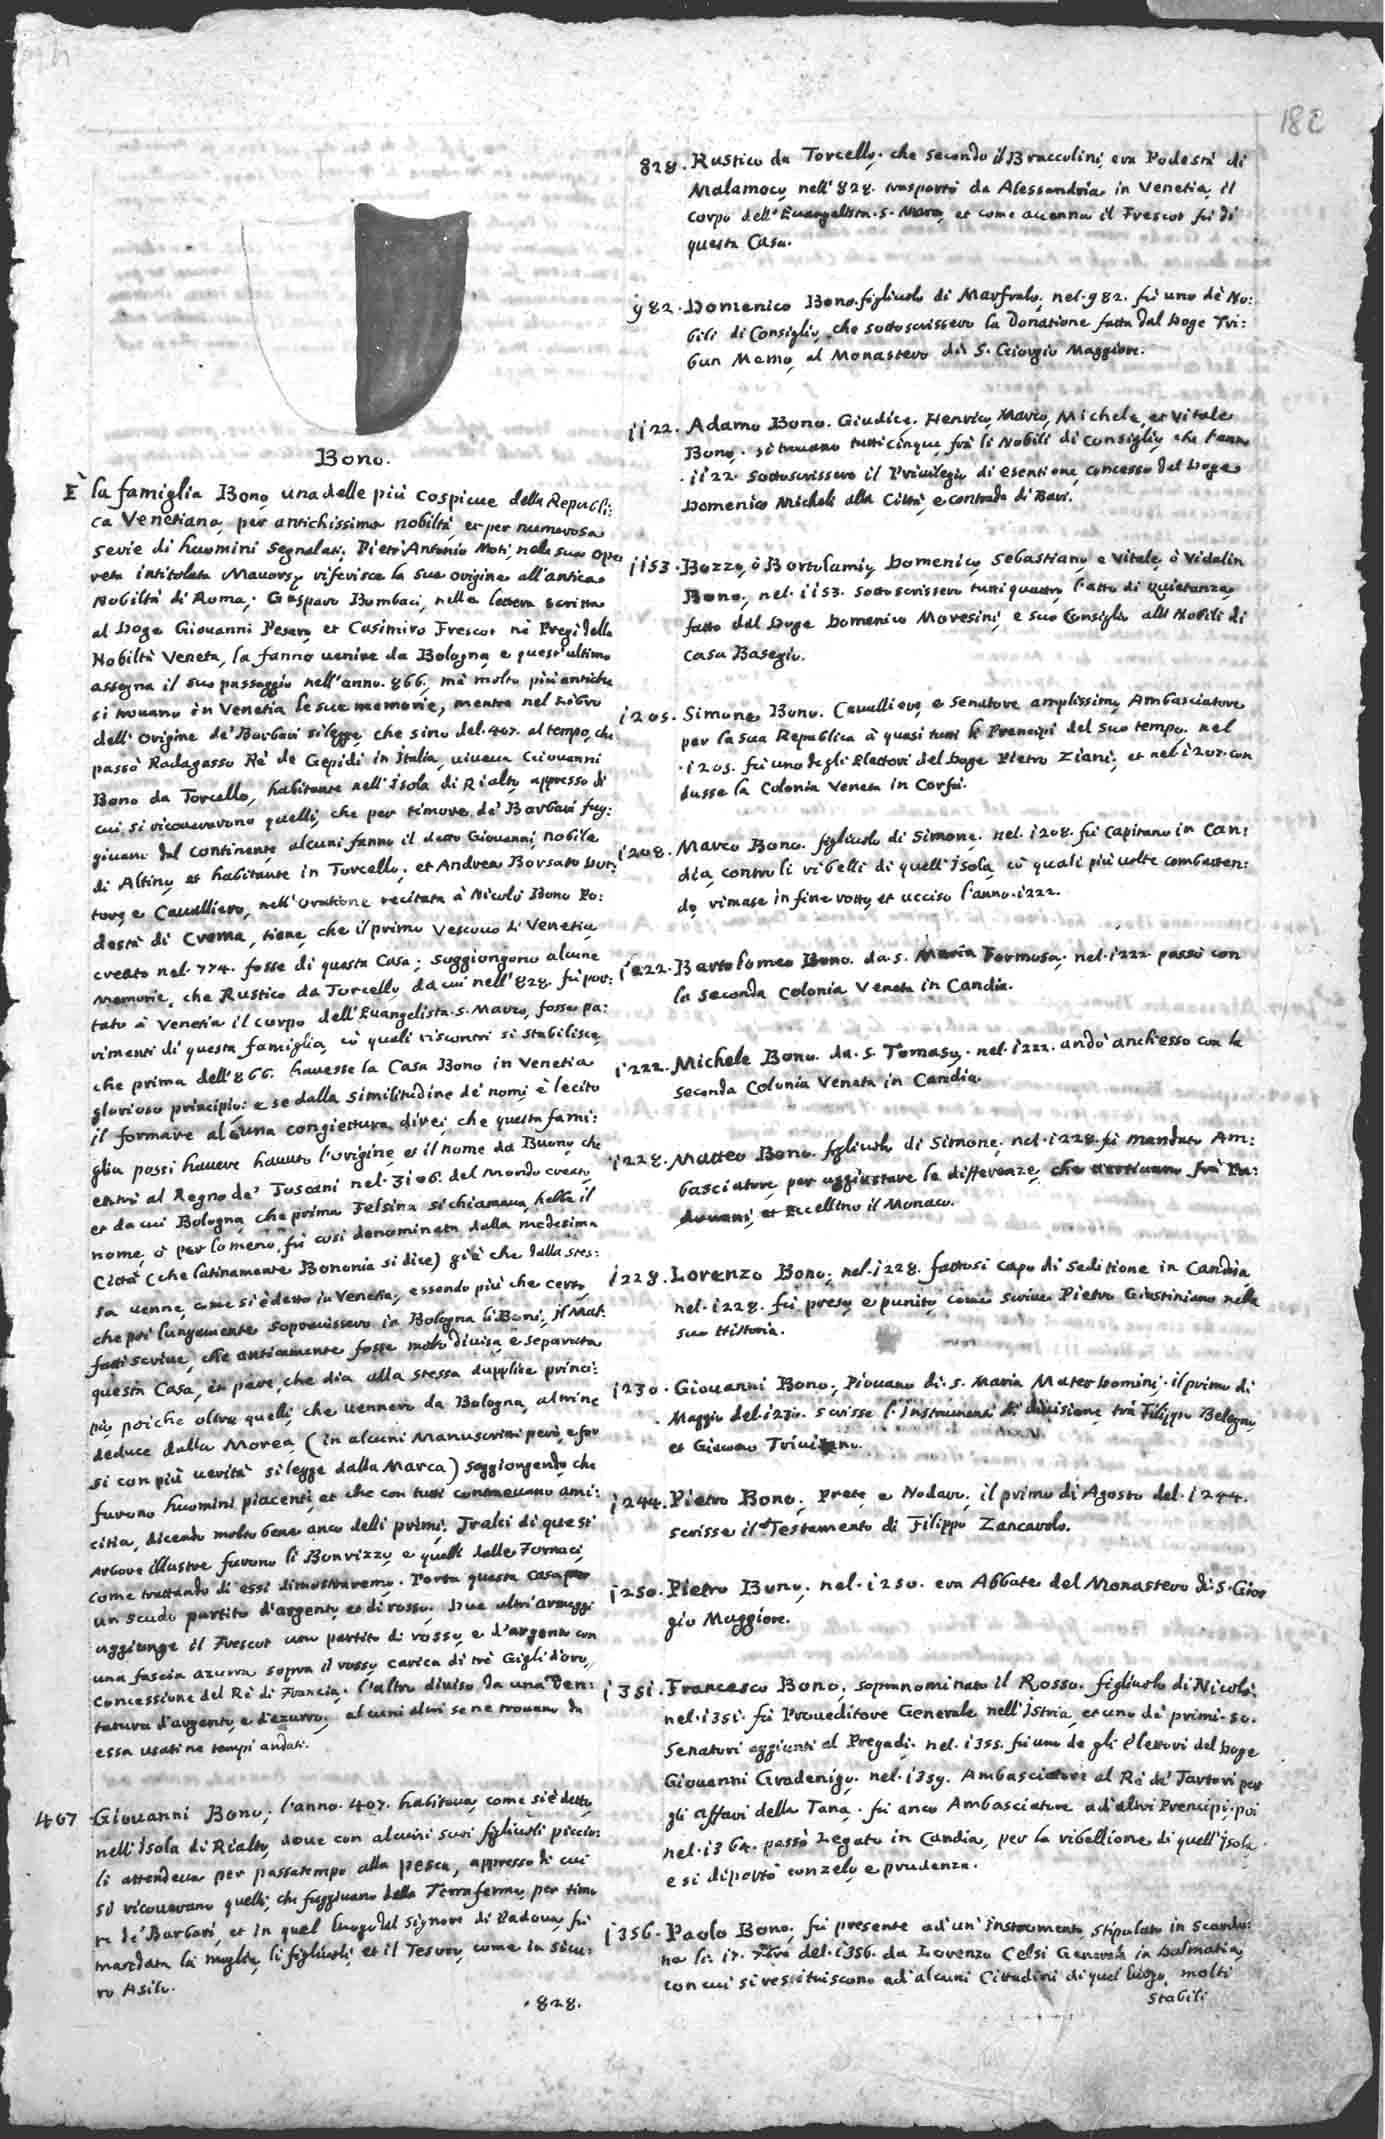 182
Bono.
È la famiglia Bono, una delle più cospicue della Republi:
ca Venetiana, per antichissima nobiltà, et per numerosa
serie di huomini segnalati. Pietr'Antonio Moti nella sua ope
reta intitolata Mavors, riferisce la sua origine all'antica
Nobiltà di Roma; Gasparo Bombaci, nella lettera scritta
al Doge Giouanni Pesaro, et Casimiro Frescot nè Pregi della
Nobiltà Veneta, la fanno uenire da Bologna, e quest'ultimo
assegna il suo passaggio nell'anno. 866., mà molto più antiche
si trouano in Venetia le sue memorie, mentre nel Libro
dell'origine de' Barbari si legge, che sino del. 407. al tempo, che
passò Radagasso Rè de Gepidi in Italia, uiueua Giouanni
Bono da Torcello, habitante nell'Isola di Rialto, appresso di
cui si ricouerarono quelli, che per timore de' Barbari fug:
giuano dal continente, alcuni fanno il detto Giouanni, nobile
di Altino, et habitante in Torcello; et Andrea Borsato Dot:
tore, e Cavalliero, nell'oratione recitata à Nicolò Bono Po:
destà di Crema, tiene, che il primo Vescouo di Venetia,
creato nel. 774. fosse di questa Casa; soggiongono alcune
memorie, che Rustico da Torcello, da cui nell'828. fù por:
tato à Venetia il corpo dell'Euangelista. S. Marco, fosse pa:
rimenti di questa famiglia, cò quali riscontri si stabilisce,
che prima dell'866. hauesse la Casa Bono in Venetia
glorioso principio: e se dalla similitudine de nomi è lecito
il formare alcuna congiettura, direi che questa fami:
glia possi hauere hauuto l'origine, et il nome da Buono, che
entrò al Regno de' Toscani nel. 3106. del Mondo creato,
et da cui Bologna, che prima Felsina si chiamaua, hebbe il
nome, ò per lo meno, fù così denominata dalla medesima
Città (che latinamente Bononia si dice) già che dalla stes:
sa uenne, come si è detto in Venetia; essendo più che certo,
che poi lungamente soprauissero in Bologna li Boni; il Mal:
fatti scriue, che anticamente fosse molto diuisa, e separata
questa Casa, et pare, che dia alla stessa dupplice princi:
pio, poiche oltre quelli, che uennero da Bologna, altri ne
deduce dalla Morea (in alcuni Manuscritti però, e for
si con più uerità si legge dalla Marca) soggiongendo, che
furono huomini piacenti, et che con tutti contraeuano ami:
citia, dicendo molto bene anco delli primi. Tralci di questi
Arbore illustre furono li Bonrizzo, e quelli dalle Fornaci,
come trattando di essi dimostraremo. Porta questa Casa per
un scudo partito d'argento, et di rosso. Due altri armeggi
aggiunge il Frescot uno partito di rosso, e d'argento con
una fascia azurra sopra il rosso, carica di trè Gigli d'oro,
concessione del Rè di Francia. l'altro diuiso da una Den:
tatura d'argento, e d'azurro; alcuni altri se ne trouano da
essa usati ne tempi andati.
407 Giouanni Bono; l'anno. 407. habitaua, come si è detto,
nell'Isola di Rialto, doue con alcuni suoi figliuoli piccio:
li attendeua per passatempo alla pesca, appresso di cui
si ricouerano quelli, che fuggiuano dalla Terraferma, per timo
re de' Barbari, et in quel luogo dal signore di Padoua, fù
mandata la moglie, li figliuoli, et il Tesoro, come in sicu:
ro Asilo.
.828.
828. Rustico da Torcello. che secondo il Braccolini, era Podestà di
Malamoco, nell'828. trasportò da Alessandria in Venetia il
corpo dell'Euangelista. S. Marco, et come accenna il Frescot fù di
questa Casa.
982. Domenico Bono. figliuolo di Marfralo, nel. 982. fù uno dè No:
bili di Consiglio, che sottoscrissero la donatione fatta dal Doge Tri:
bun Memo, al Monastero di S. Giorgio Maggiore.
1122. Adamo Bono. Giudice. Henrico, Marco, Michele, et Vitale
Bono, si trouano tutti cinque frà li Nobili di Consiglio, che l'anno
.1122. sottoscrissero il Priuilegio di esentione, concesso dal Doge
Domenico Micheli alla Città, e contrada di Bari.
1153. Bozzo, ò Bortolamio, Domenico, Sebastiano, e Vitale, ò Vidalin
Bono; nel. 1153. sottoscrissero tutti quattro l'atto di Quietanza,
fatto dal Doge Domenico Moresini, e suo Consiglio alli Nobili di
Casa Basegio.
1205. Simone Bono. Cavalliero, e Senatore amplissimo, Ambasciatore
per la sua Republica à quasi tutti li Prencipi del suo tempo, nel
.1205. fù uno degli Elettori del Doge Pietro Ziani; et nel 1207. con
dusse la Colonia Veneta in Corfù.
1208. Marco Bono. figliuolo di Simone, nel. 1208. fù Capitano in Can:
dia, contro li ribelli di quell'Isola, cò quali più uolte combatten:
do, rimase in fine rotto, et ucciso l'anno. 1222.
1222. Bartolomeo Bono. da. S. Maria Formosa, nel. 1222. passò con
la seconda Colonia Veneta in Candia.
1222. Michele Bono. da. S. Tomaso. nel. 1222. andò anch'esso con la
seconda Colonia Veneta in Candia.
1228. Matteo Bono. figliuolo di Simone; nel. 1228. fù mandato Am:
basciatore, per aggiustare le differenze, che uertiuano frà Pa:
douani, et Eccellino il Monaco.
1228. Lorenzo Bono; nel. 1228. fattosi capo di seditione in Candia
nel. 1228. fù preso, e punito, come scriue Pietro Giustiniano nella
sua Historia.
1230. Giouanni Bono; Piouano di. S. Maria Mater Domini. il primo di
Maggio del. 1230. scrisse l'Instrumento di diuisione trà Filippo Belegno,
et Giacomo Triuisano.
1244. Pietro Bono; Prete, e Nodaro; il primo di Agosto del. 1244.
scrisse il Testamento di Filippo Zancarolo.
1250. Pietro Bono; nel. 1250. era Abbate del Monastero di. S. Gior
gio Maggiore.
1351. Francesco Bono; soprannominato il Rosso. figliuolo di Nicolò.
nel. 1351. fù Proueditore Generale nell'Istria, et uno dè primi. 50.
Senatori aggiunti al Pregadi. nel. 1355. fù uno de gli Elettori del Doge
Giouanni Gradenigo. nel. 1359. Ambasciatore al Rè de' Tartari per
gli affari della Tana. fù anco Ambasciatore ad altri Prencipi. poi
nel. 1364. passò Legato in Candia, per la ribellione di quell'Isola
e si diportò con zelo, e prudenza.
1356. Paolo Bono; fù presente ad un'instrumento, stipulato in Scardo:
na li: 17. 7bre del. 1356. da Lorenzo Celsi Generale in Dalmatia,
con cui si restituiscono ad alcuni Cittadini di quel luogo, molti
stabili